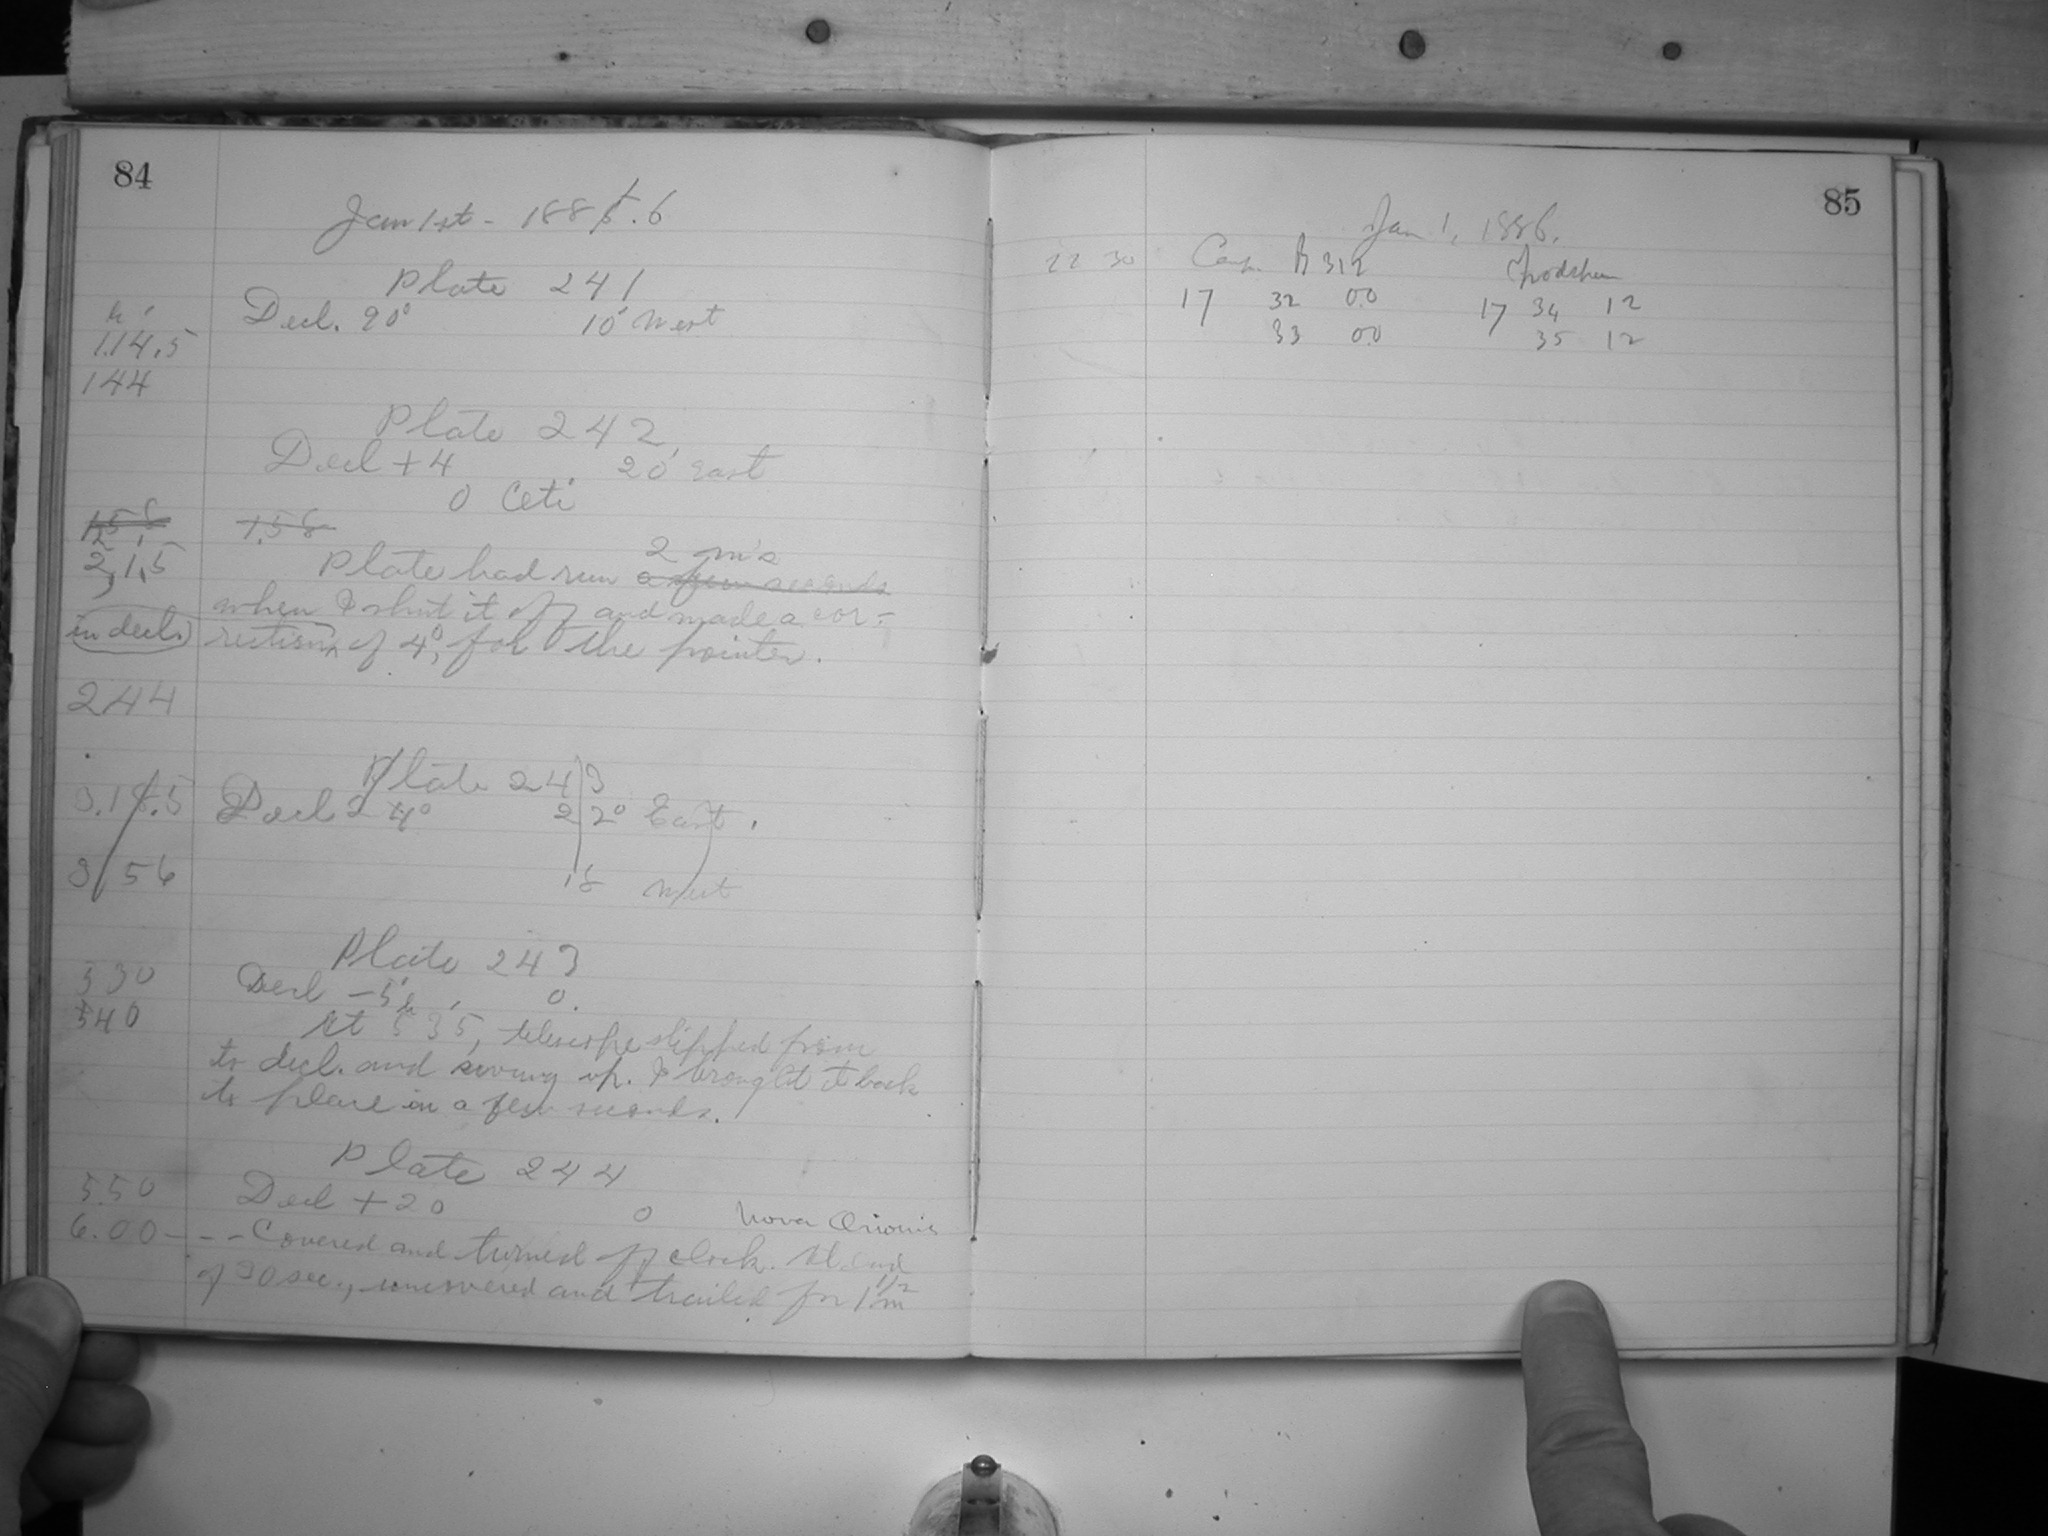 84
Jan 1st - 1885.6
Plate 241
h '
Decl. 90° 10' West
1.14.5
144
Plate 242
Decl + 4 20' East
o Ceti
158 1.58
2,1,5
2 m's
Plate had run a few seconds
when I shut it off and made a cor-
in decl. rection of 4°, for the pointer.
244
Plate 243
3.18.5 Decl 24° 22° East.
3 56 18 West
Plate 243
530 Decl - 5° 0.
540 At 5h 35', telescope slipped from
to decl. and swung up. I brought it back
to place in a few seconds.
Plate 244
5.50 Decl + 20 0 Nova Orionis
6.00 - - - Covered and turned off clock. At end
of 30 sec., uncovered and trailed for 1 1/2 m
85
Jan 1, 1886.
22 30 Comp. B 312 Frodsham
17 32 00 17 34 12
33 00 35 12